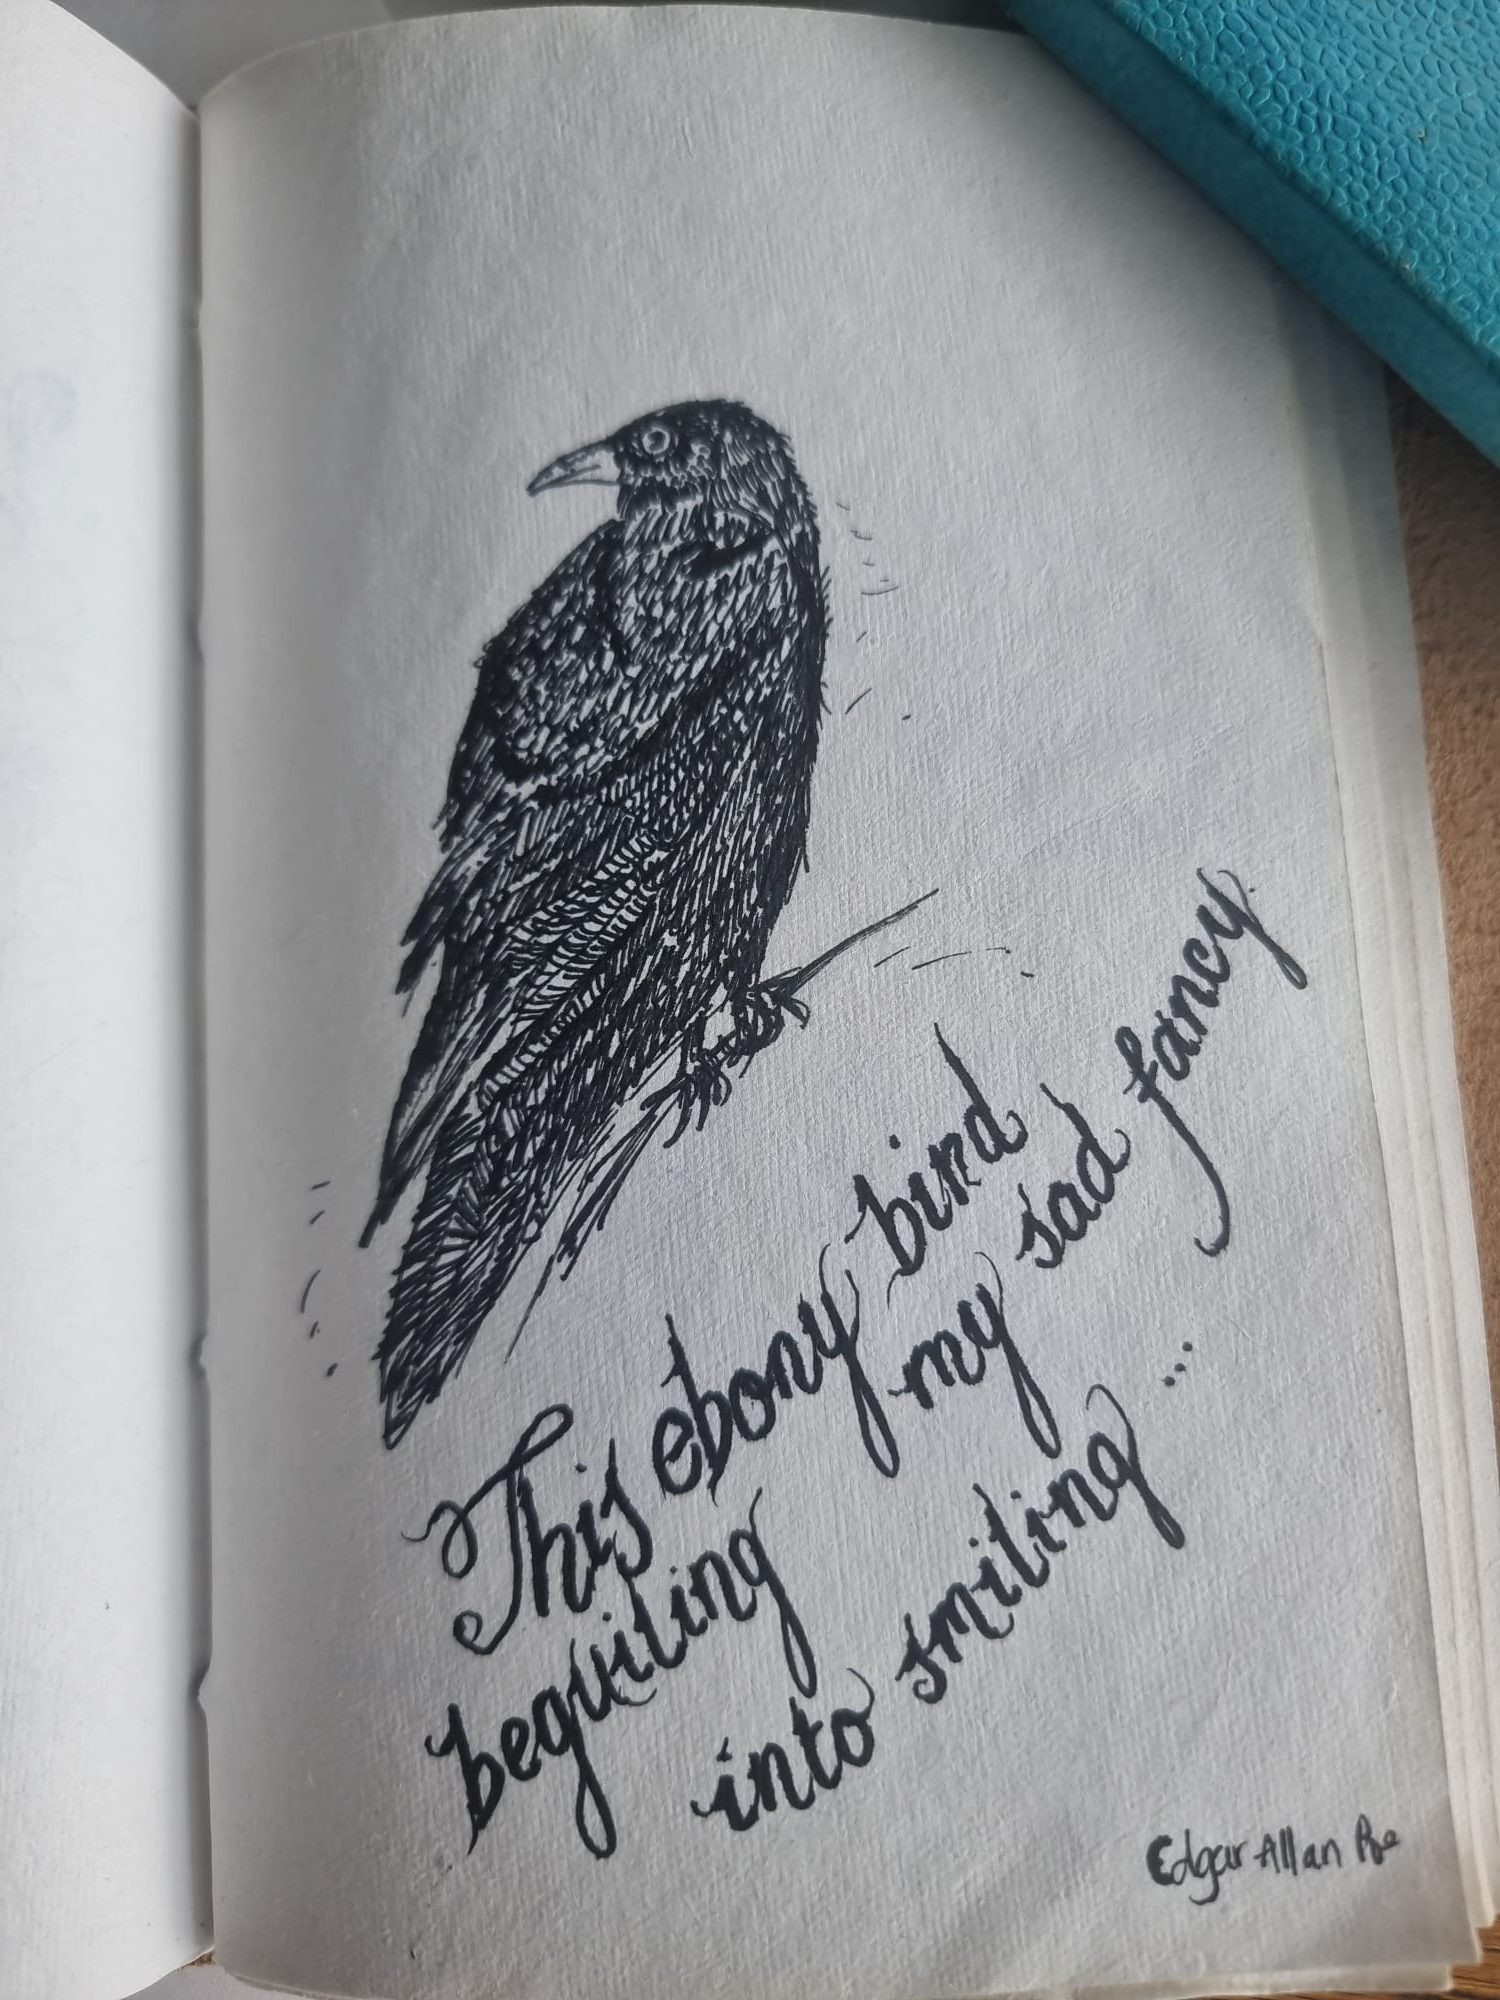 This ebony bird
beguiling my sad fancy
into smiling ...
Edgar Allan Poe